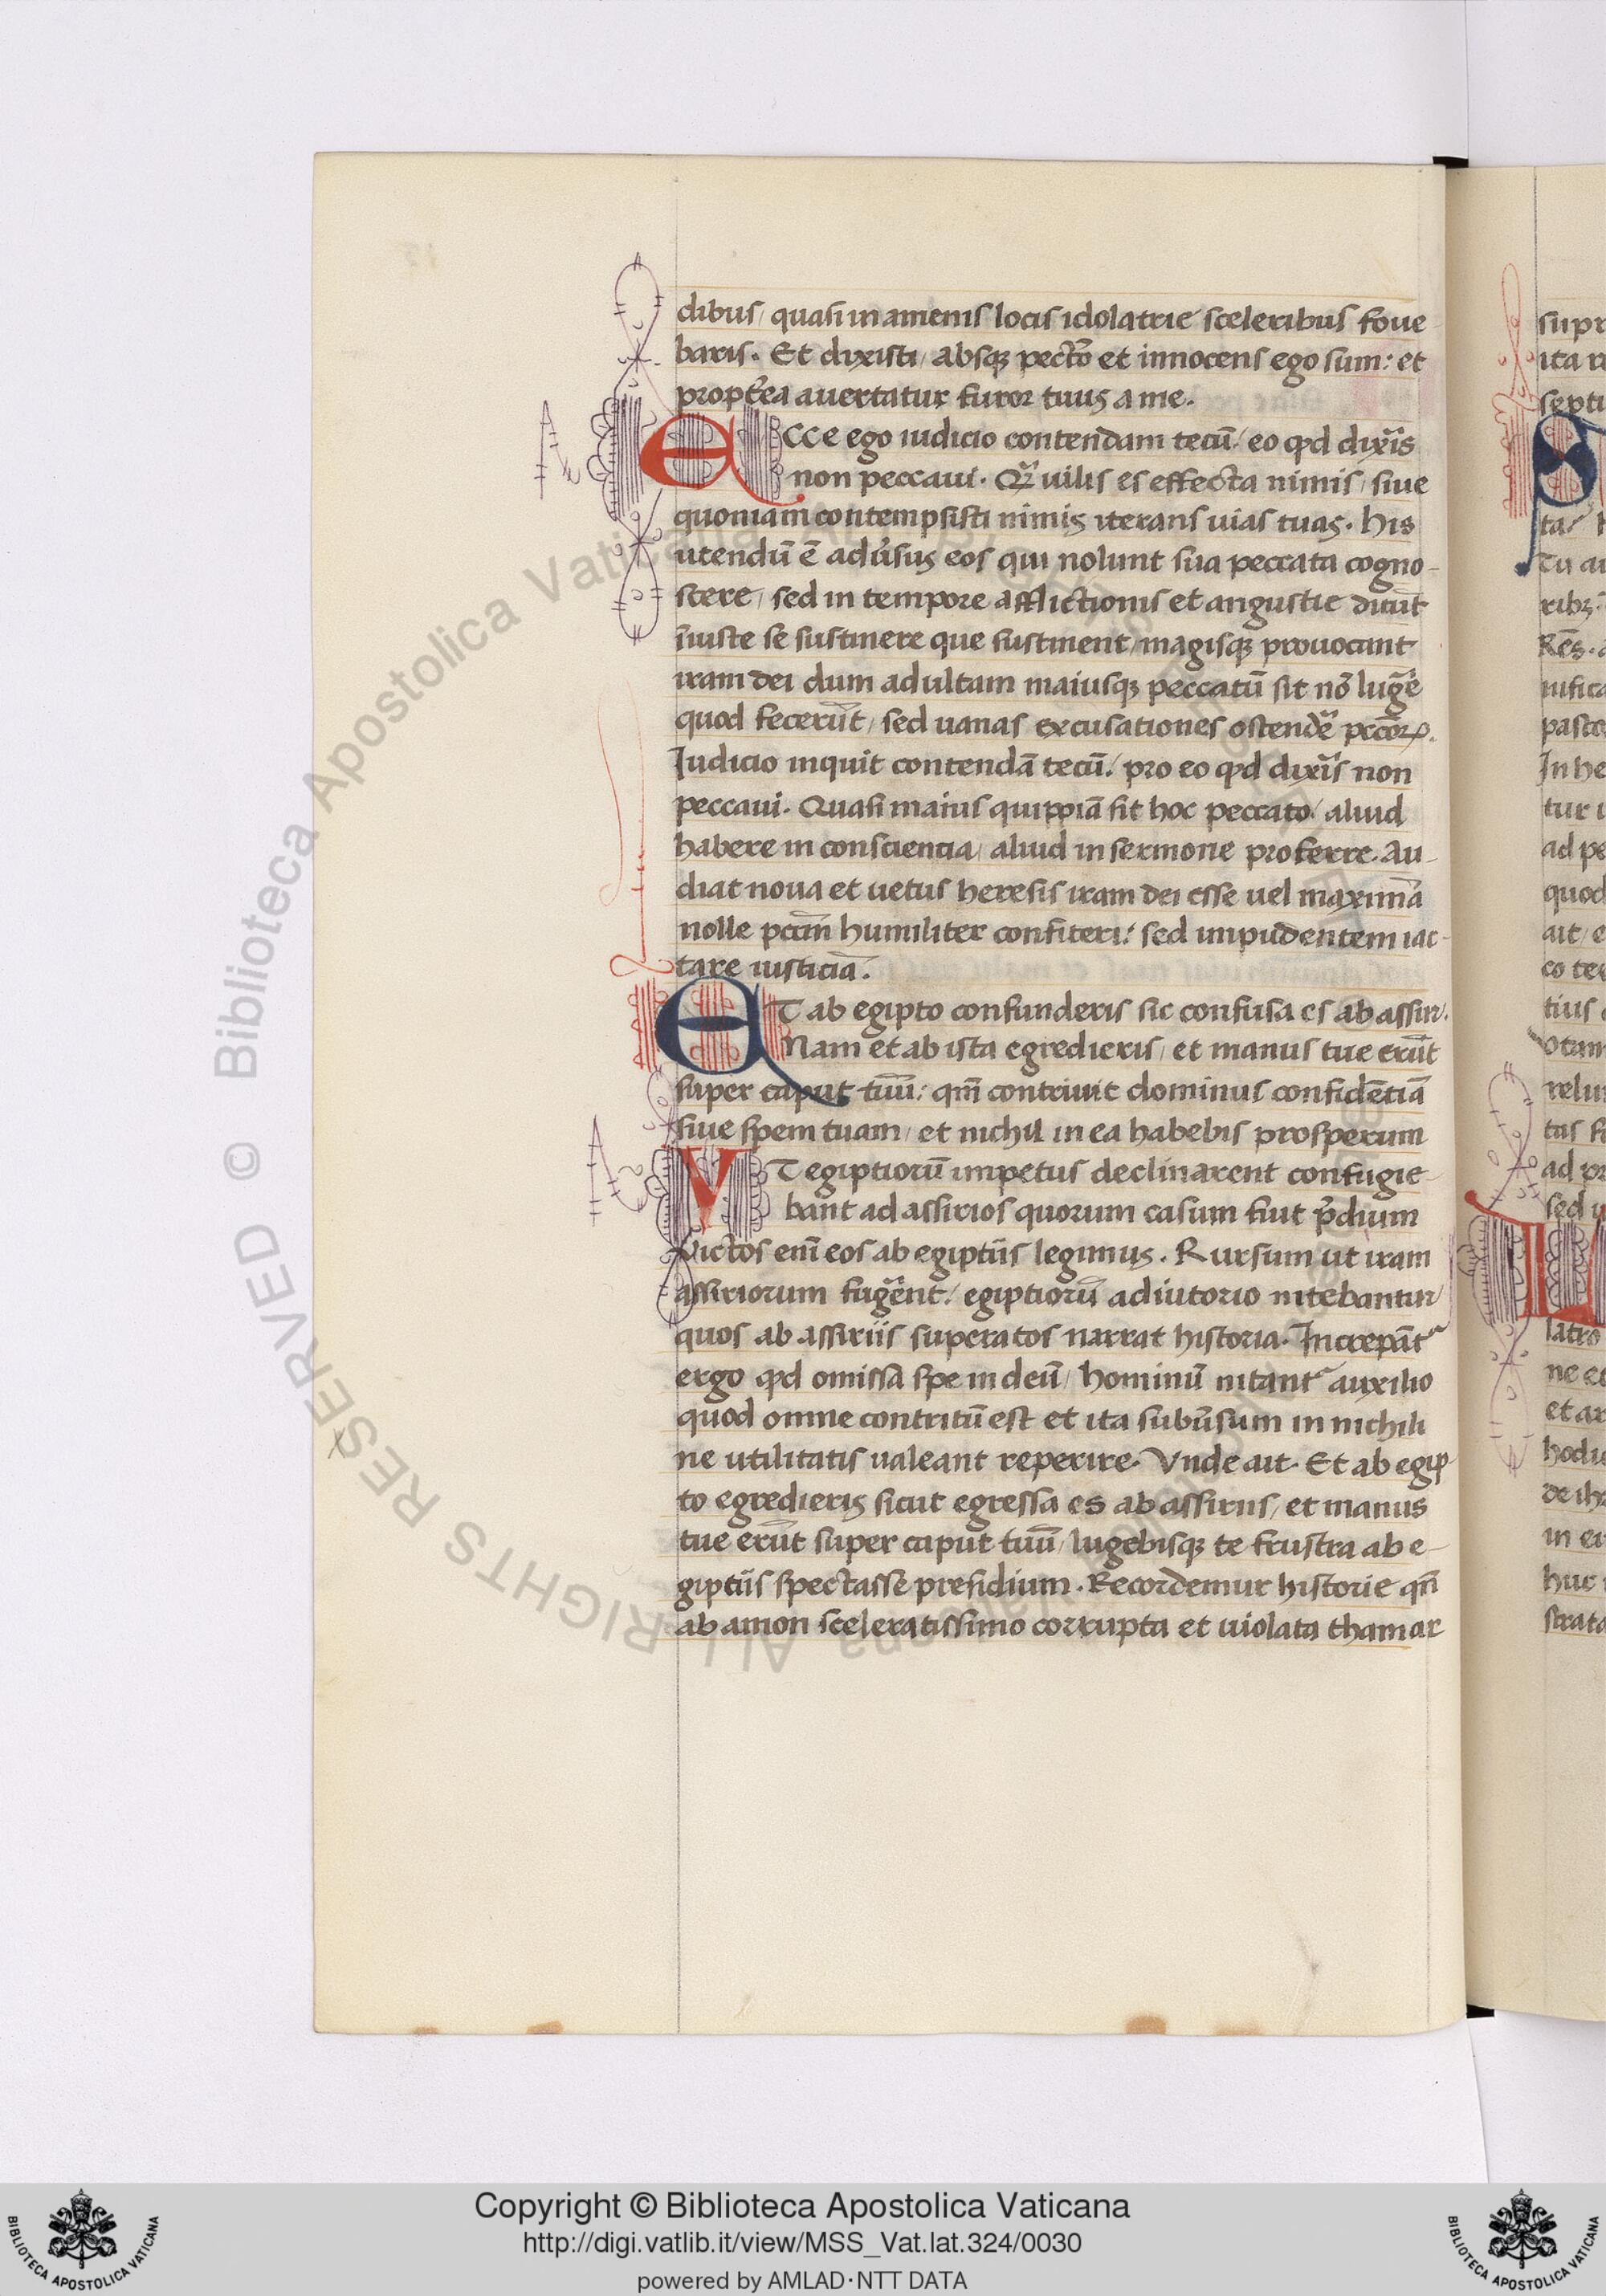 dibus / quasi in amenis locis idolatrie sceleribus foue
baris. Et dixisti / absqꝫ pectō et innocens ego sum: et
propt̉ea auertatur furor tuus a me.
ECCe ego iudicio contendam tecū / eo qd dixis̉
non peccaui. Qꝛ̉ uilis es effecta nimis / siue
quoniam contempsisti nimis iterans uias tuas. his
utendū ē adu̓sus eos qui nolunt sua peccata cogno-
scere / sed in tempore afflictionis et angustie dicūt
iniuste se sustinere que sustinent / magisqꝫ prouocant
iram dei dum adultam maiusqꝫ peccatū sit nō luge̓
quod fecerūt / sed uanas excusationes ostende̓ pccōꝝ.
Iudicio inquit contendā tecū / pro eo qd dixis̉ non
peccaui. Quasi maius quippiā sit hoc peccato / aliud
habere in consciencia / aliud in sermone proferre. Au-
diat noua et uetus heresis iram dei esse uel maximā
nolle pccm̄ humiliter confiteri: sed impudentem iac-
tare iusticiā.
ET ab egipto confunderis sic confusa es ab assiri.
Nam et ab ista egredieris / et manus tue erūt
super caput tuū: qm̄ contriuit dominus confidētiā
siue spem tuam / et nichil in ea habebis prosperum
VT egiptiorū impetus declinarent confugie-
bant ad assirios quorum casum fiut p̉dium
Victos enī eos ab egiptiis legimus. Rursum ut iram
assiriorum fuge̓nt / egiptiorū adiutorio nitebantur
quos ab assiriis superatos narrat historia. Increpāt᷑
ergo qd omissā spe in deū / hominū nitant᷑ auxilio
quod omne contritū est et ita subu̓sum in nichili
ne utilitatis ualeant reperire. Vnde ait. Et ab egip
to egredieris sicut egressa es ab assiriis / et manus
tue erūt super caput tuū / lugebisqꝫ te frustra ab e-
giptiis spectasse presidium. Recordemur historie qn̄
ab amon sceleratissimo corrupta et uiolata thamar
supr
septi
In he
tur i
ad pe
quod
ait / e
co te
tius
relin
tas
ad pr
sed u
latro
ne
et ar
hodi
de ihꝫ
in ei
huc
strata
© Biblioteca Apostolica Vaticana
ALL RIGHTS RESERVED
Copyright © Biblioteca Apostolica Vaticana
http://digi.vatlib.it/view/MSS_Vat.lat.324/0030
powered by AMLAD·NTT DATA
BIBLIOTECA APOSTOLICA VATICANA
BIBLIOTECA APOSTOLICA VATICANA